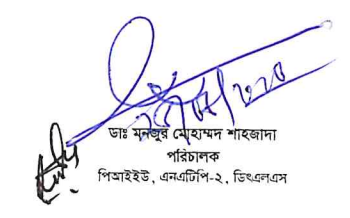 ডাঃ মনজুর মোহাম্মদ শাহজাদা
পরিচালক
পিআইইউ, এনএটিপি-২, ডিএলএস